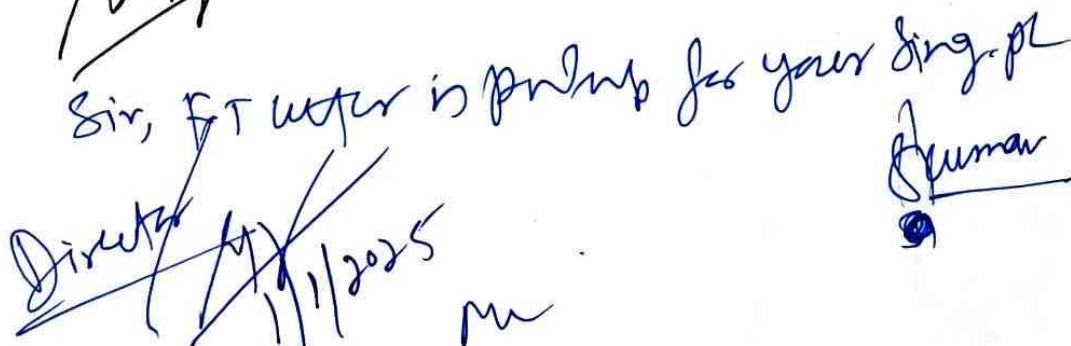 Sir, FT letter is put up for your sing. pl
Kumar
Director
1/1/2025